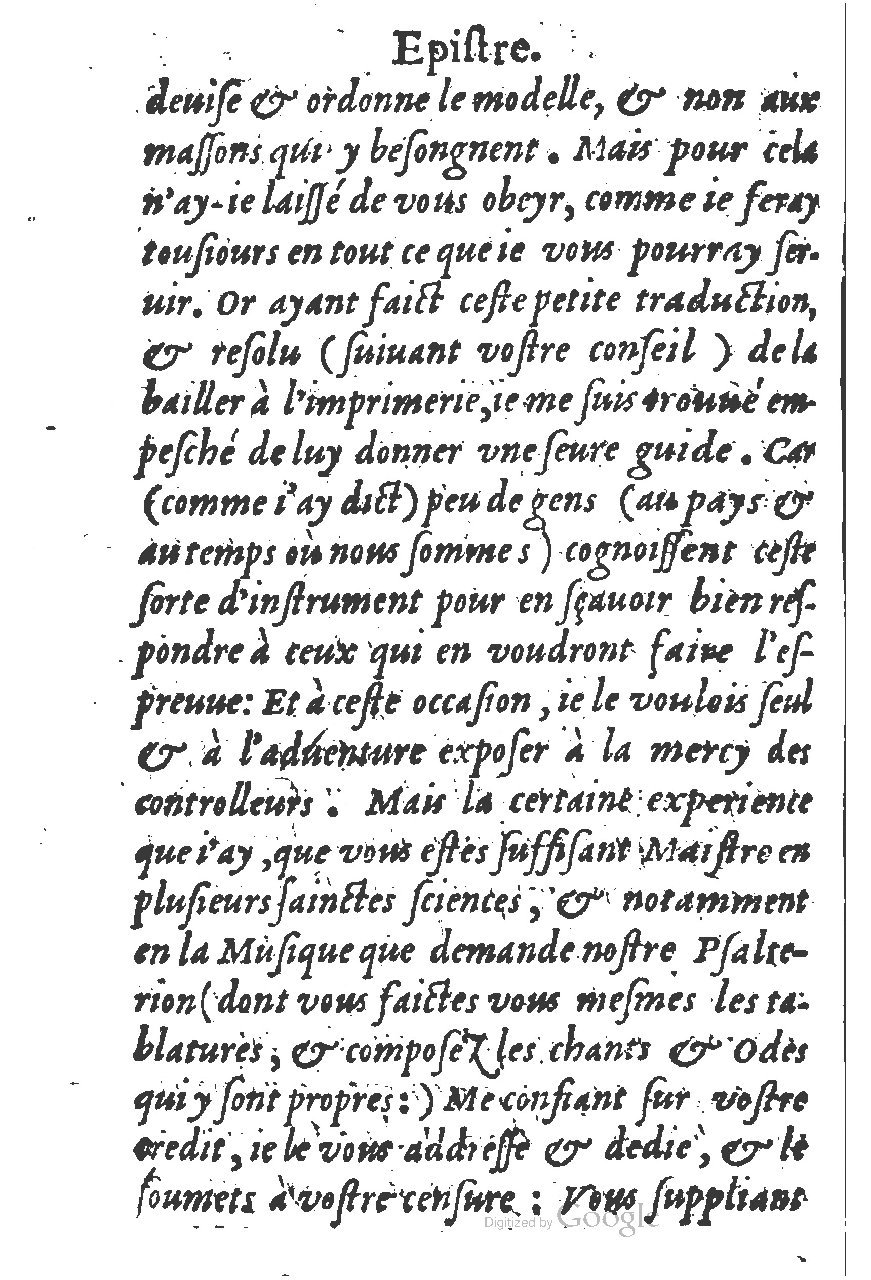 Epiſtre.
deuiſe & ordonne le modelle, & non aux
maſſons qui y beſongnent. Mais pour cela
n'ay-ie laiſſé de vous obeyr, comme ie feray
touſiours en tout ce que ie vous pourray ſer-
uir. Or ayant faict ceſte petite traduction,
& reſolu (ſuiuant voſtre conſeil) de la
bailler à l'imprimerie, ie me ſuis trouué em-
peſché de luy donner vne ſeure guide. Car
(comme i'ay dict) peu de gens (au pays &
au temps où nous ſommes) cognoiſſent ceſte
ſorte d'inſtrument pour en ſçauoir bien reſ-
pondre à ceux qui en voudront faire l'eſ-
preuue: Et à ceſte occaſion, ie le voulois ſeul
& à l'aduenture expoſer à la mercy des
controlleurs. Mais la certaine experience
que i'ay, que vous eſtes ſuffiſant Maiſtre en
pluſieurs ſainctes ſciences, & notamment
en la Muſique que demande noſtre Pſalte-
rion (dont vous faictes vous meſmes les ta-
blatures, & compoſez les chants & Odes
qui y ſont propres:) Me confiant ſur voſtre
credit, ie le vous addreſſe & dedie, & le
ſoumets à voſtre cenſure: Vous ſuppliant
Digitized by Google